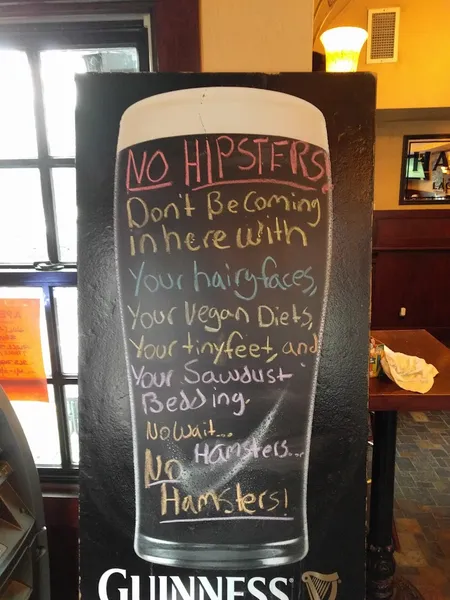 NO HIPSTERS
Don't Be Coming
in here with
Your hairy faces,
Your Vegan Diets,
Your tiny feet, and
Your Sawdust
Bedding.
No Wait...
Hamsters...
No
Hamsters!
GUINNESS